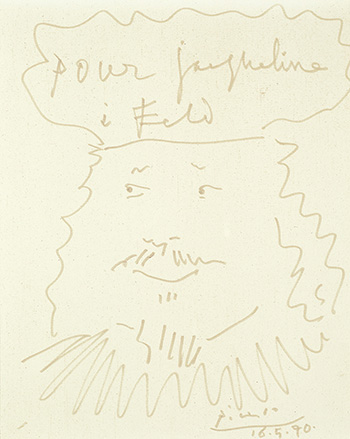 pour jacqueline
i
picasso
16.5.70.